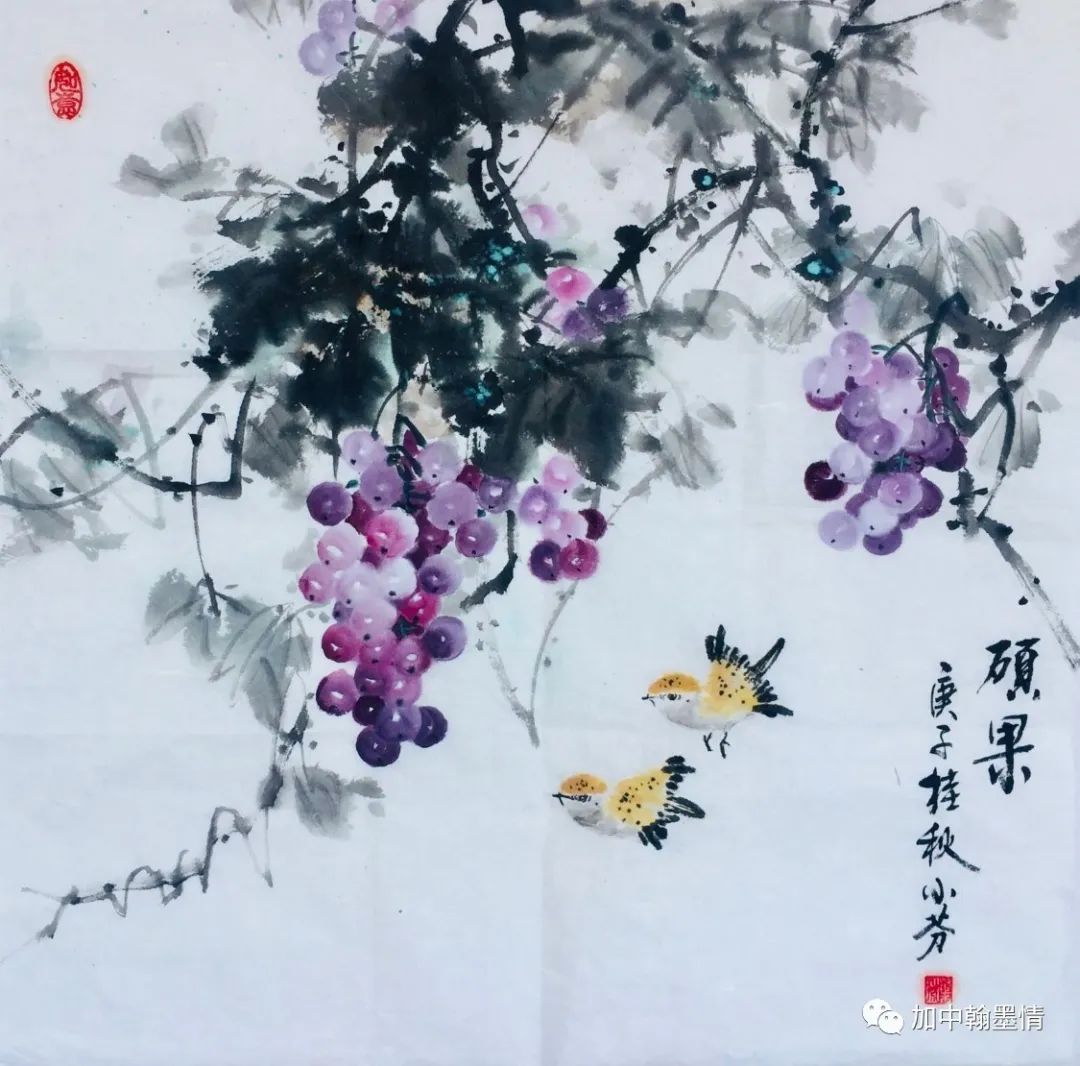 碩果
庚子桂秋小芬
加中翰墨情